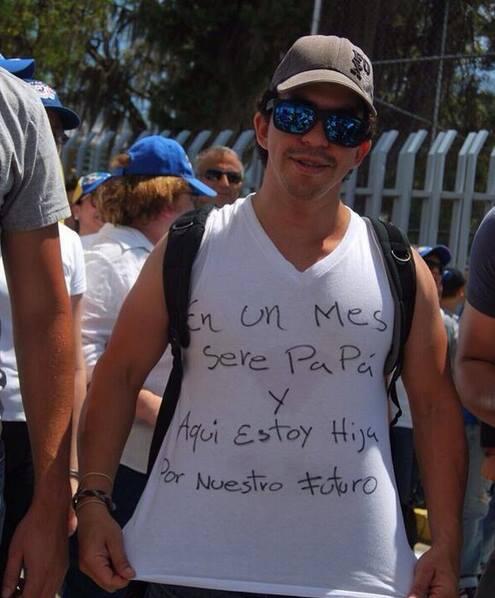 En un Mes
Sere PaPá
Y
Aqui Estoy Hija
Por Nuestro Futuro